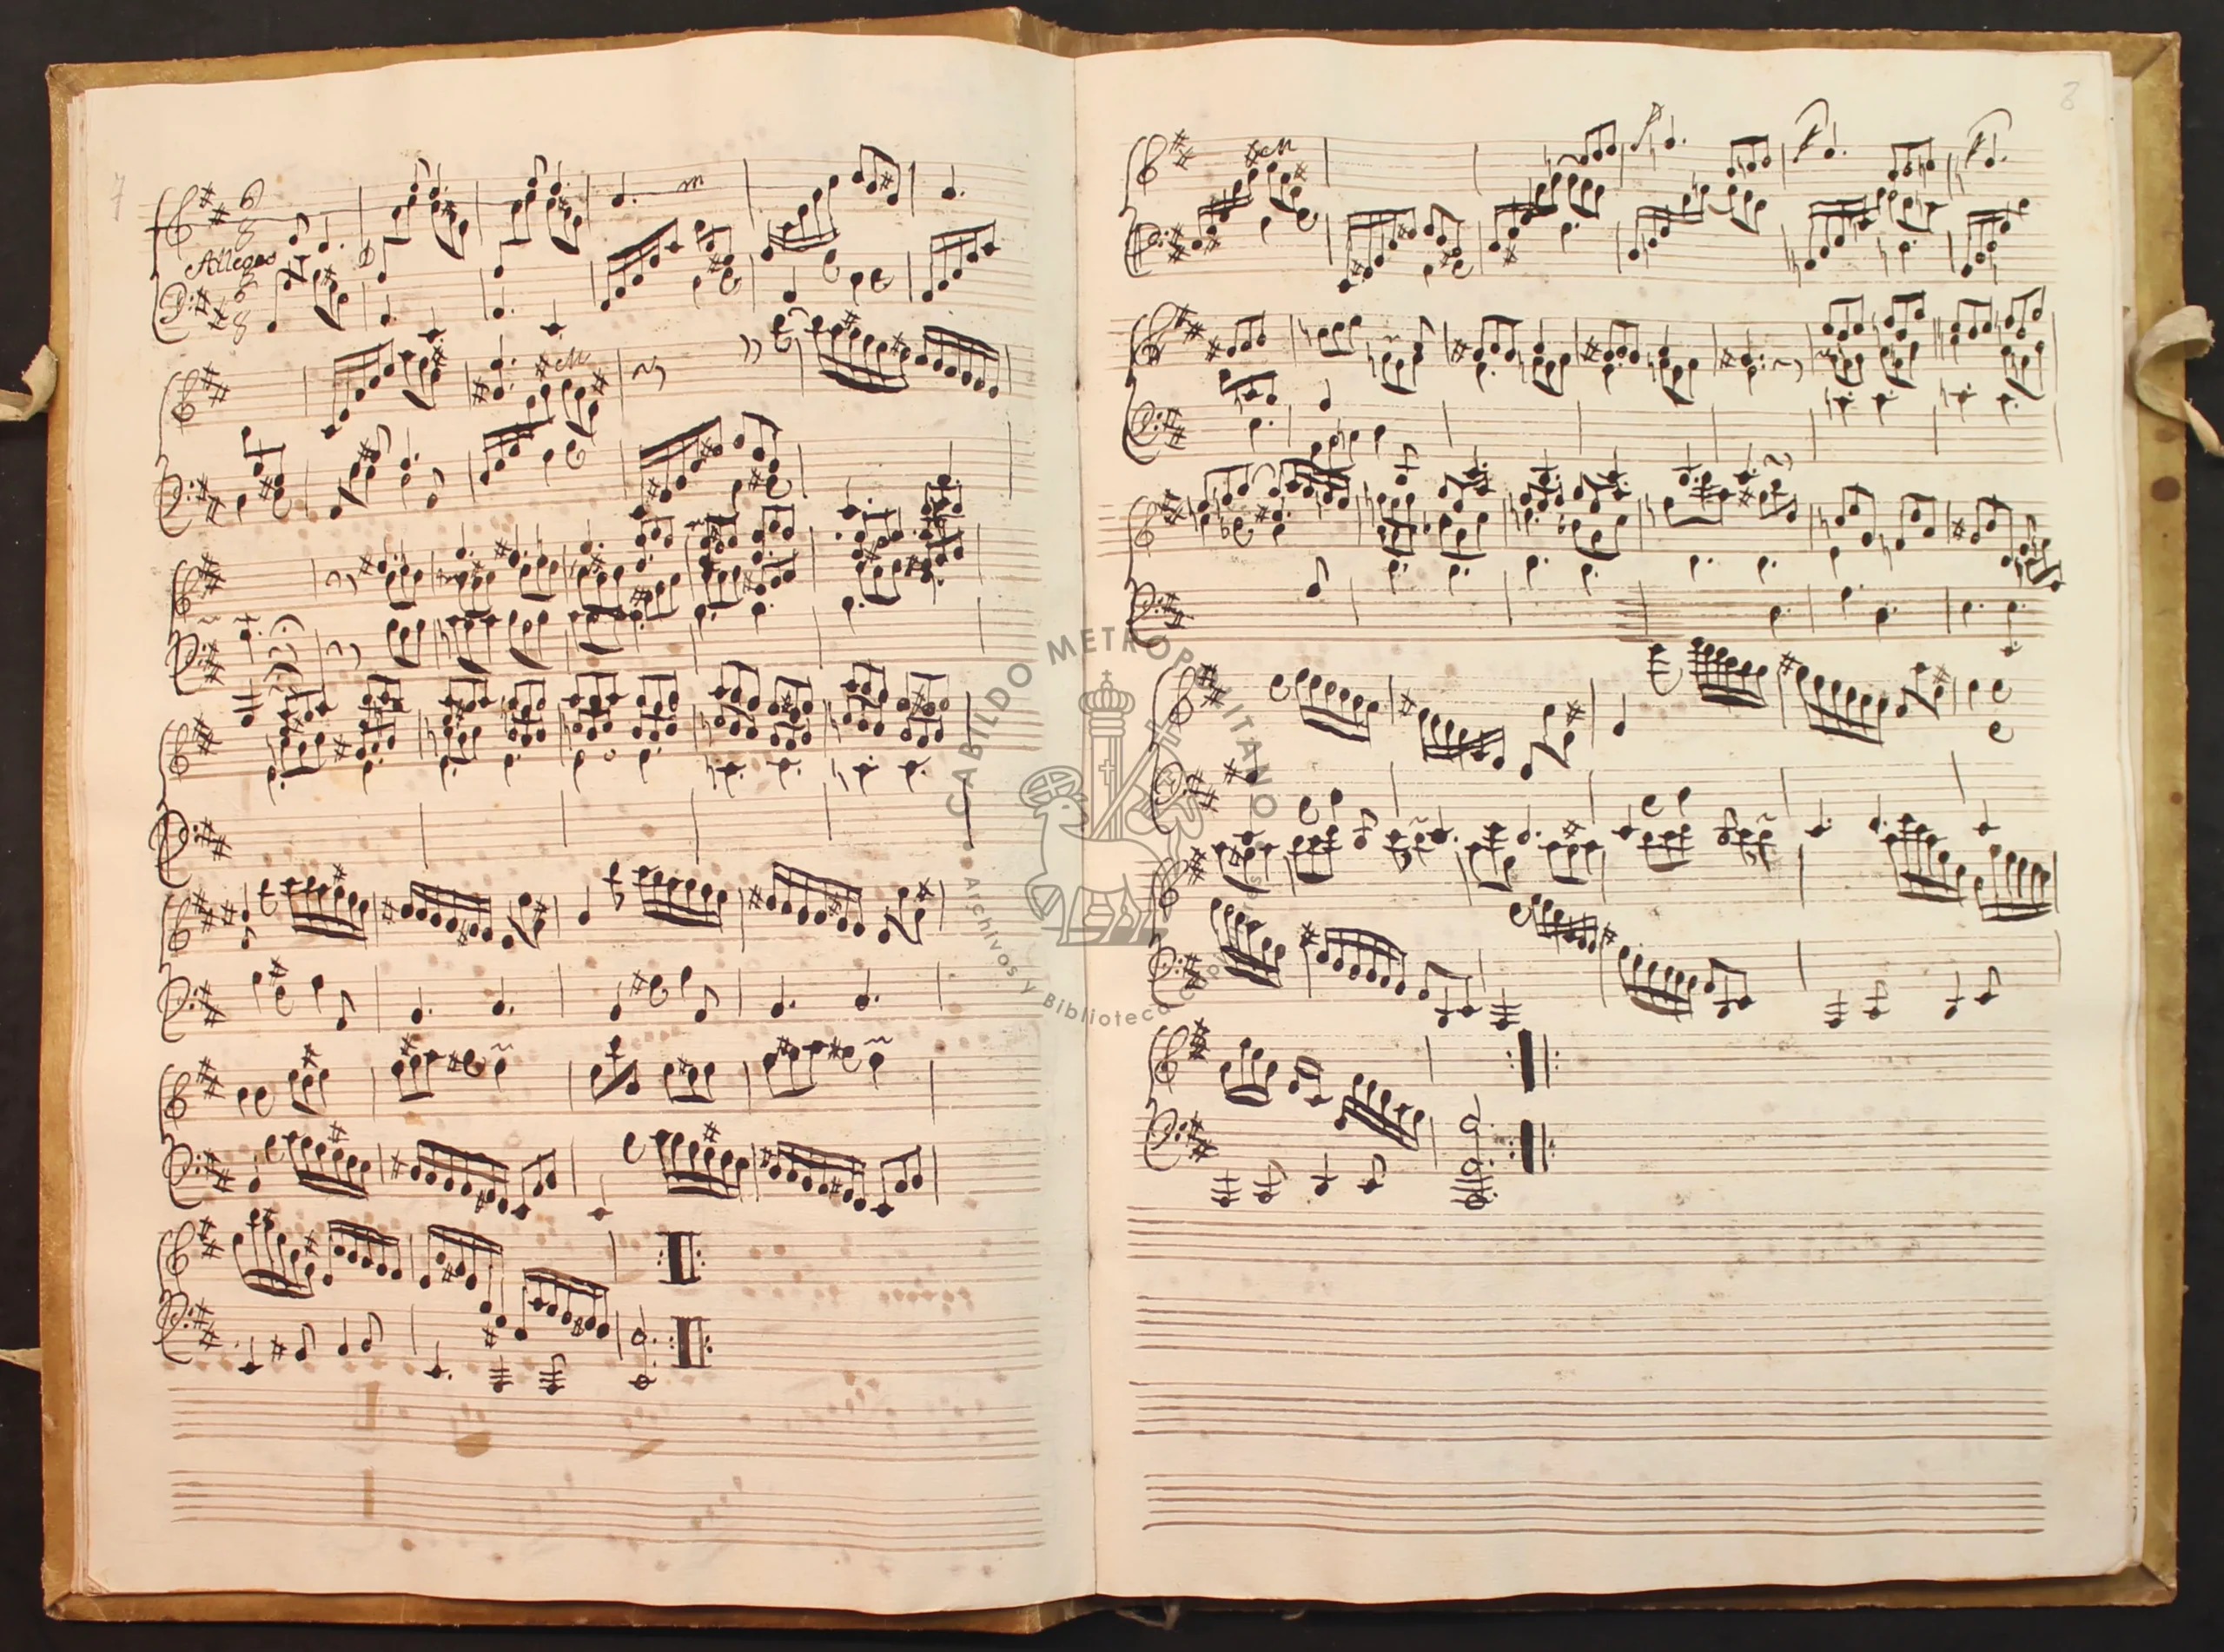 7
8
6
8
Allegro
6
8
CABILDO METROPOLITANO
Archivos y Biblioteca